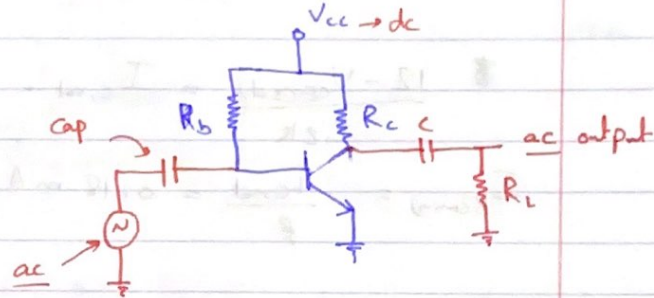 Vcc → dc
Rb
Rc
C
cap
ac output
RL
~
ac